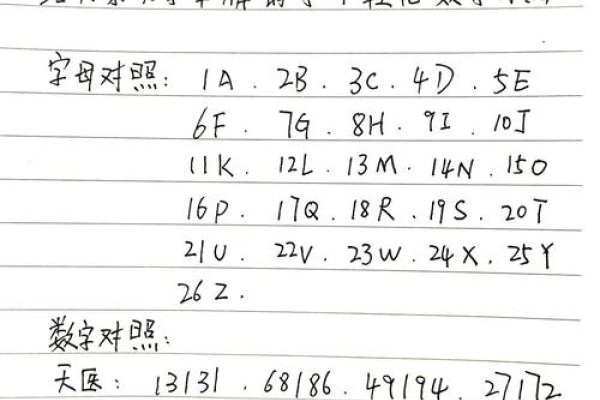 字母对照: 1A . 2B . 3C . 4D . 5E
6F . 7G . 8H . 9I . 10J
11K . 12L . 13M . 14N . 15O
16P . 17Q . 18R . 19S . 20T
21U . 22V . 23W . 24X . 25Y
26Z .
数字对照:
天医: 13131 . 68186 . 49194 . 27172